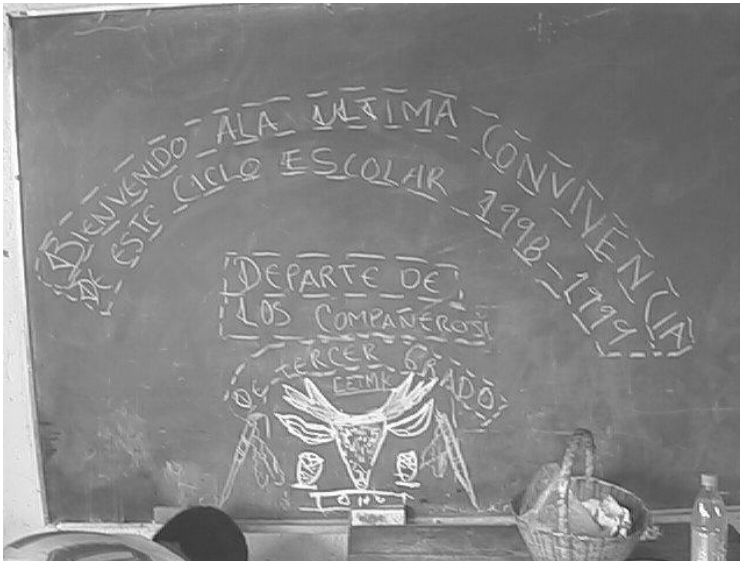 BIENVENIDO ALA ULTIMA CONVIVENCIA
DE ESTE CICLO ESCOLAR 1998-1999
DEPARTE DE
LOS COMPAÑEROS
DE TERCER GRADO